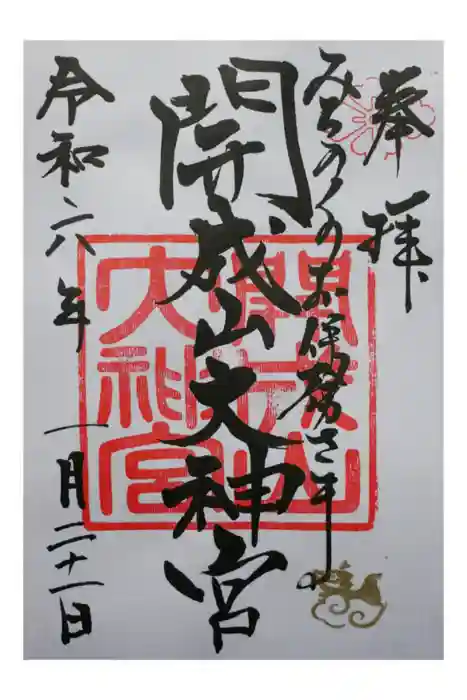 奉拝
みちのくのお伊勢さま
開成山大神宮
開成山
大神宮
令和六年一月二十一日